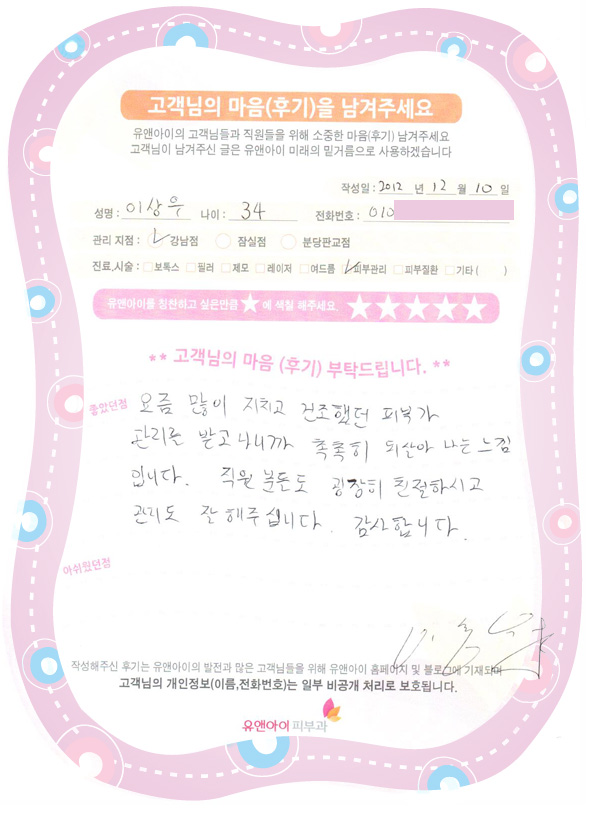 고객님의 마음(후기)을 남겨주세요
유앤아이의 고객님들과 직원들을 위해 소중한 마음(후기) 남겨주세요
고객님이 남겨주신 글은 유앤아이 미래의 밑거름으로 사용하겠습니다
작성일 : 2012 년 12 월 10 일
성명 : 이상우 나이 : 34 전화번호 : 010
관리 지점 : 강남점 잠실점 분당판교점
진료,시술 : 보톡스 필러 제모 레이저 여드름 피부관리 피부질환 기타 ( )
유앤아이를 칭찬하고 싶은만큼 ★ 에 색칠 해주세요. ★★★★★
** 고객님의 마음 (후기) 부탁드립니다. **
좋았던점 요즘 많이 지치고 건조했던 피부가
관리를 받고나니까 촉촉히 되살아 나는 느낌
입니다. 직원 분들도 굉장히 친절하시고
관리도 잘 해주십니다. 감사합니다.
아쉬웠던점
작성해주신 후기는 유앤아이의 발전과 많은 고객님들을 위해 유앤아이 홈페이지 및 블로그에 기재되며
고객님의 개인정보(이름,전화번호)는 일부 비공개 처리로 보호됩니다.
유앤아이 피부과